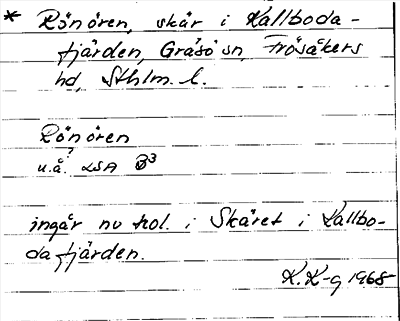 * Rönören, skär i Kallboda-
fjärden, Gräsö sn, Frösåkers
hd, Sthlm. l.
Rönören
u.å. LSA B³
ingår nu hol. i Skäret i Kallbo-
dafjärden.
K. K-g 1968